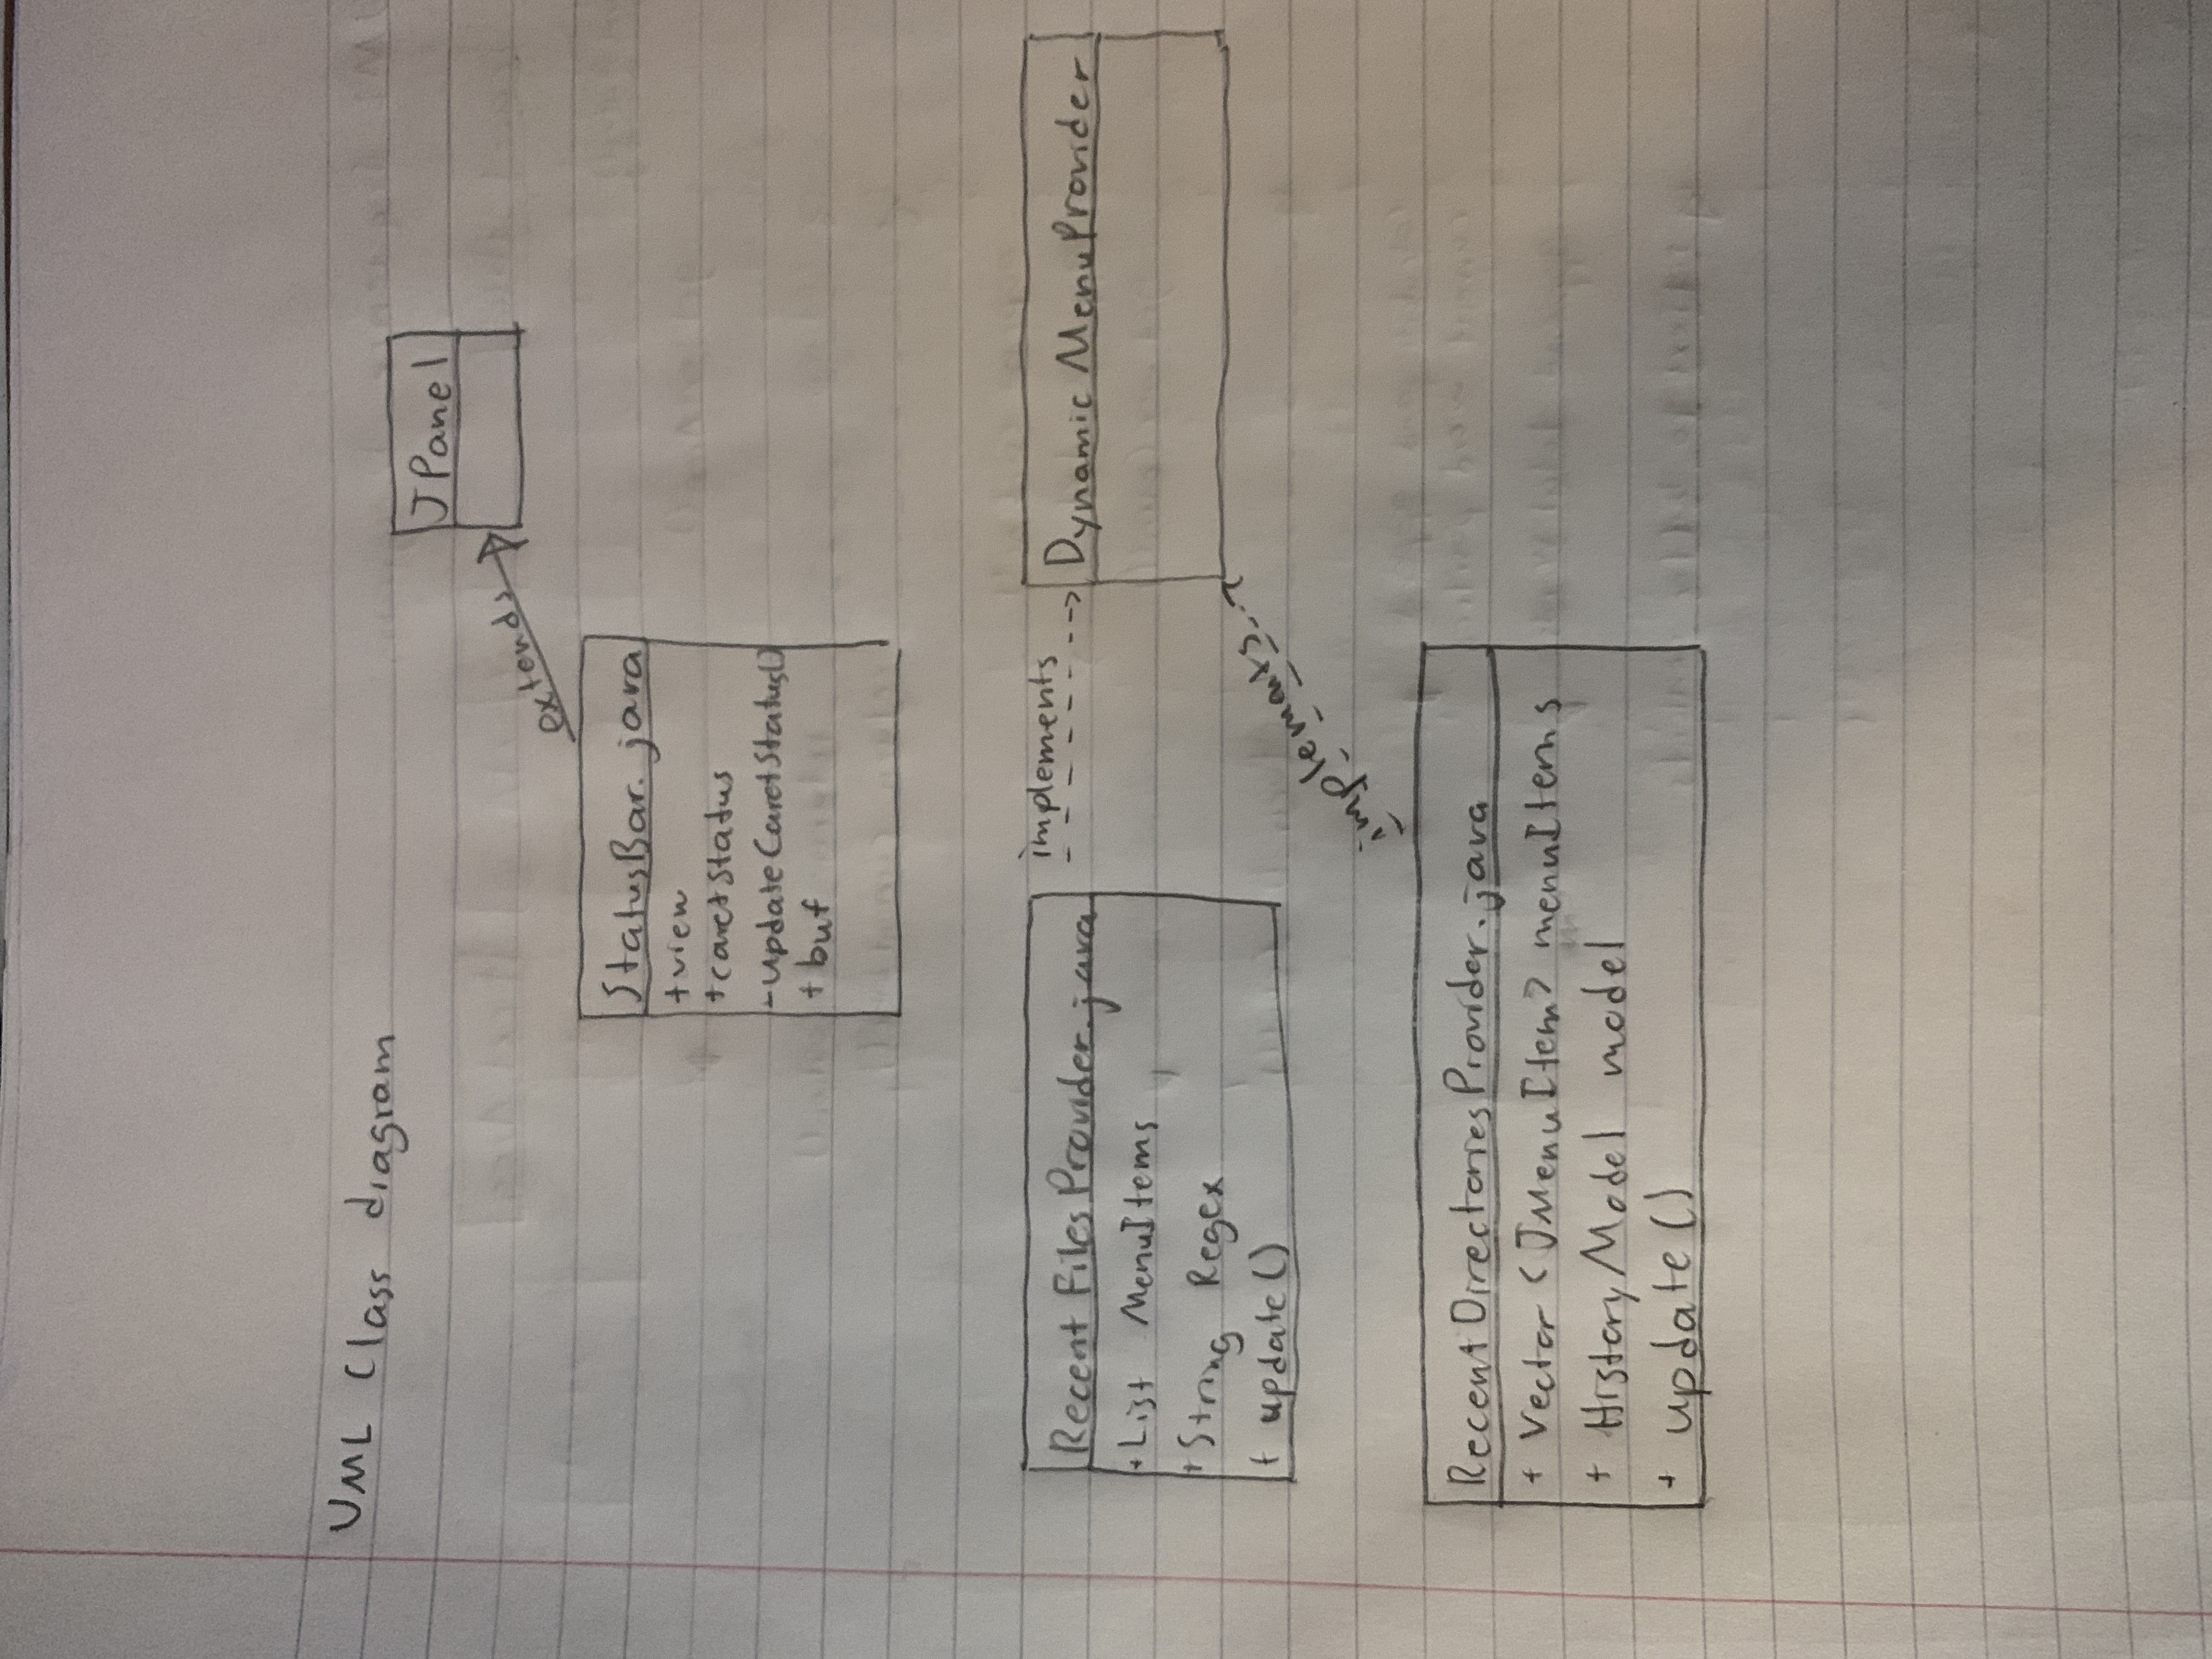 UML Class diagram
JPanel
extends
StatusBar.java
+view
+caretStatus
-updateCaretStatus()
+ buf
Recent Files Provider.java
implements
Dynamic MenuProvider
+List MenuItems
+String Regex
+ update()
implements
Recent Directories Provider.java
+ Vector <JMenuItem> menuItems
+ HistoryModel model
+ update()